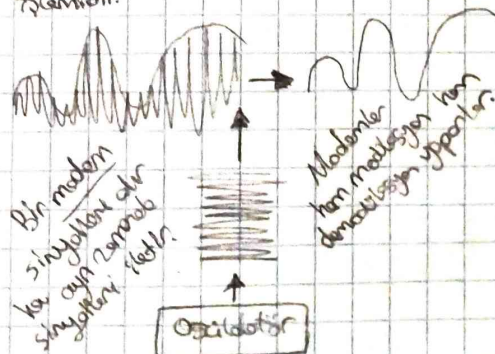 işlemidir.
Bir modem
sinyalleri alır
ve aynı zamanda
sinyalleri iletir.
Modemler
hem modülasyon hem
demodülasyon yaparlar.
Oscilatör